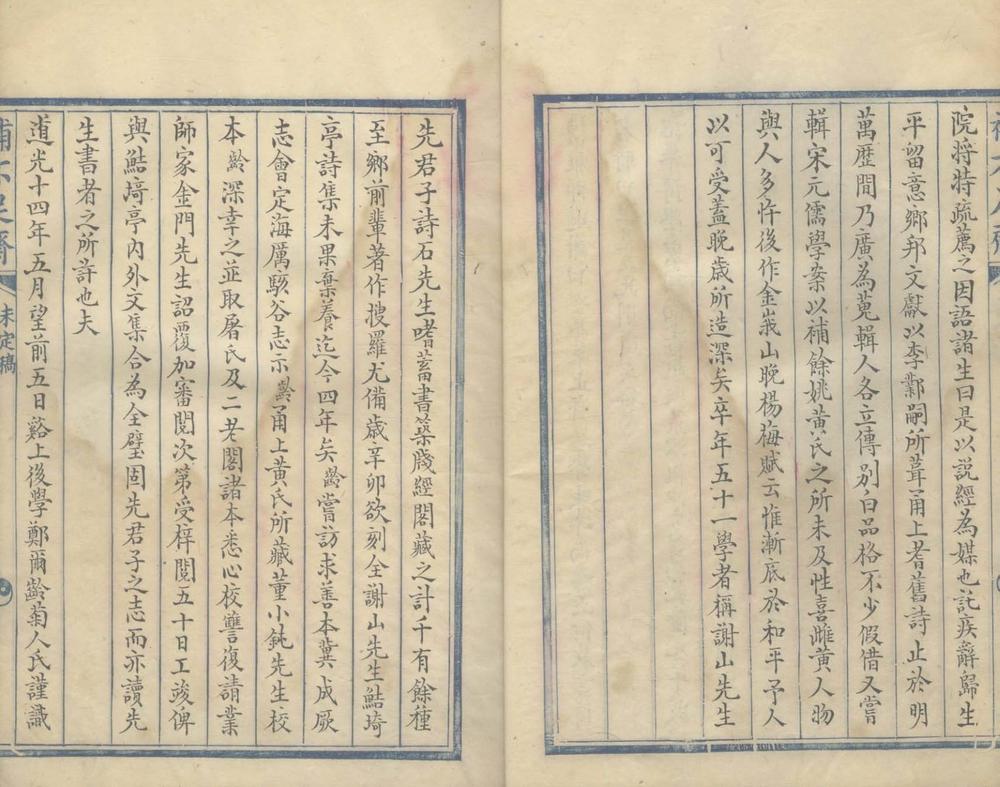 院将特疏薦之因語諸生曰是以説經為媒也託疾辭歸生
平留意鄉邦文獻以李鄴嗣所葺甬上耆舊詩止於明
萬歷間乃廣為蒐輯人各立傳别白品格不少假借又嘗
輯宋元儒學案以補餘姚黄氏之所未及性喜雌黄人物
與人多忤後作金峩山晚楊梅賦云惟漸底於和平予人
以可受蓋晚歲所造深矣卒年五十一學者稱謝山先生
先君子詩石先生嗜蓄書築箴經閣藏之計千有餘種
至鄉前輩著作搜羅尤備歲辛卯欲刻全謝山先生鮚埼
亭詩集未果棄養迄今四年矣齡嘗訪求善本冀成厥
志會定海厲駭谷志示齡甬上黄氏所藏董小鈍先生校
本齡深幸之並取屠氏及二老閣諸本悉心校讐復請業
師家金門先生詔覆加審閲次第受梓閲五十日工竣俾
與鮚埼亭內外文集合為全璧固先君子之志而亦讀先
生書者之所許也夫
道光十四年五月望前五日谿上後學鄭爾齡菊人氏謹識
未定稿